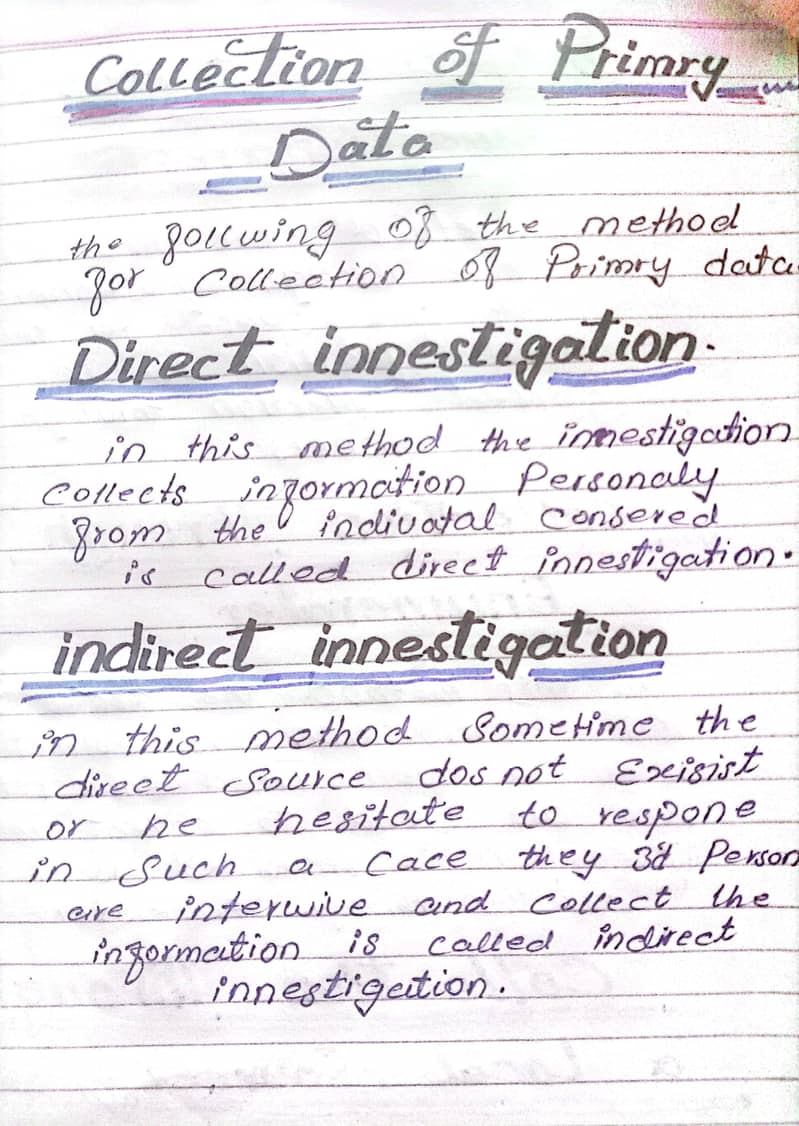 Collection of Primry
Data
the follwing of the method
for Collection of Primry data
Direct innestigation.
in this method the innestigation
Collects information Personaly
from the indivatal consered
is called direct innestigation.
indirect innestigation
in this method Sometime the
direct Source dos not Exisist
or he hesitate to respone
in Such a Cace they 3d Person
are interwive and Collect the
information is called indirect
innestigation.